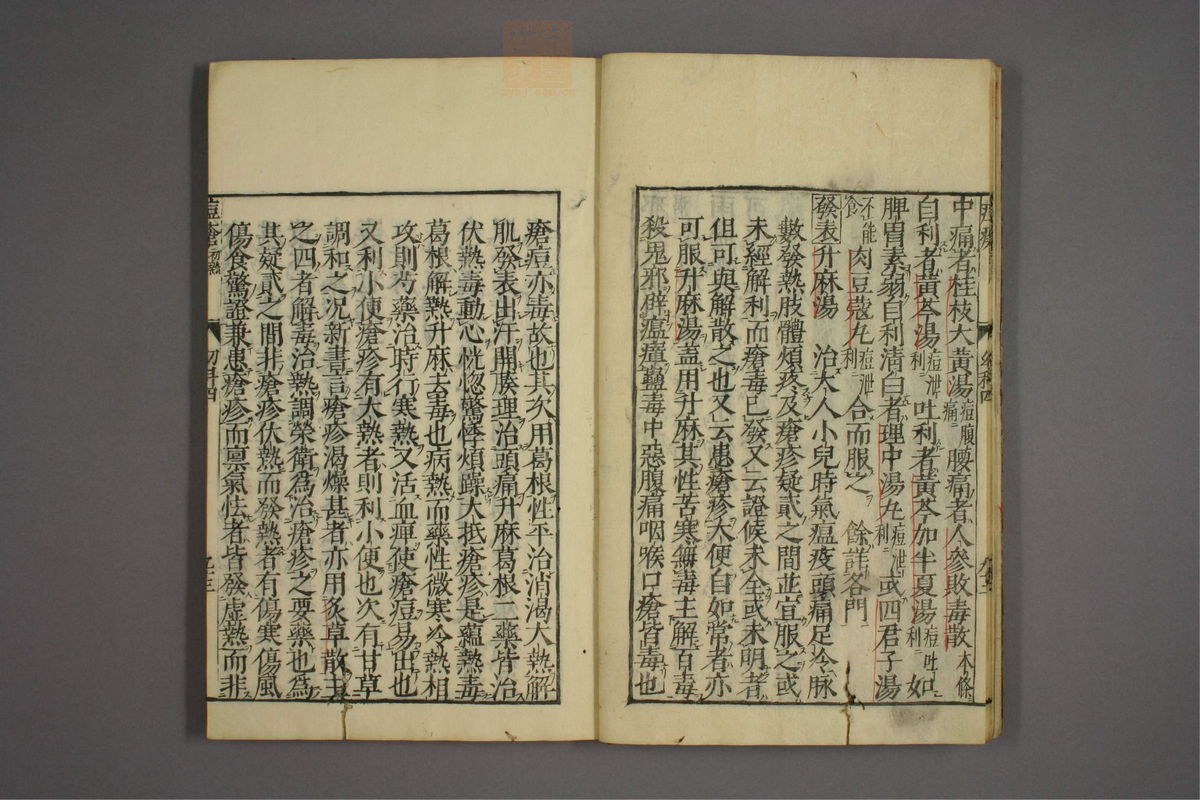 中痛者桂枝大黃湯痘腹痛腰痛者人參敗毒散本條
自利者黃芩湯痘泄利吐利者黃芩加半夏湯痘吐利如
脾胃素弱自利清白者理中湯丸痘泄利或四君子湯
不能食肉豆蔻丸痘泄利合而服之 餘詳各門
發表升麻湯 治大人小兒時氣瘟疫頭痛足冷脉
數發熱肢體煩疼及瘡疹疑貳之間並宜服之或
未經解利而瘡毒已發又云證候未全或未明者
但可與解散之也又云患瘡疹大便自如常者亦
可服升麻湯蓋用升麻其性苦寒無毒主解百毒
殺鬼邪辟瘟瘴蠱毒中惡腹痛咽喉口瘡皆毒也
瘡痘亦毒故也其次用葛根性平治消渴大熱解
肌發表出汗開腠理治頭痛升麻葛根二藥皆治
伏熱毒動心恍惚驚悸煩躁大抵瘡疹是蘊熱毒
葛根解熱升麻去毒也病熱而藥性微寒冷熱相
攻則芍藥治時行寒熱又活血痺使瘡痘易出也
又利小便瘡疹有大熱者則利小便也次有甘草
調和之況新書言瘡疹渴燥甚者亦用炙草散主
之四者解毒治熱調榮衛為治瘡疹之要藥也為
其疑貳之間非瘡疹伏熱而發熱者有傷寒傷風
傷食驚證兼患瘡疹而稟氣怯者皆發虛熱而非
痘瘡初熱 幼科四 九三